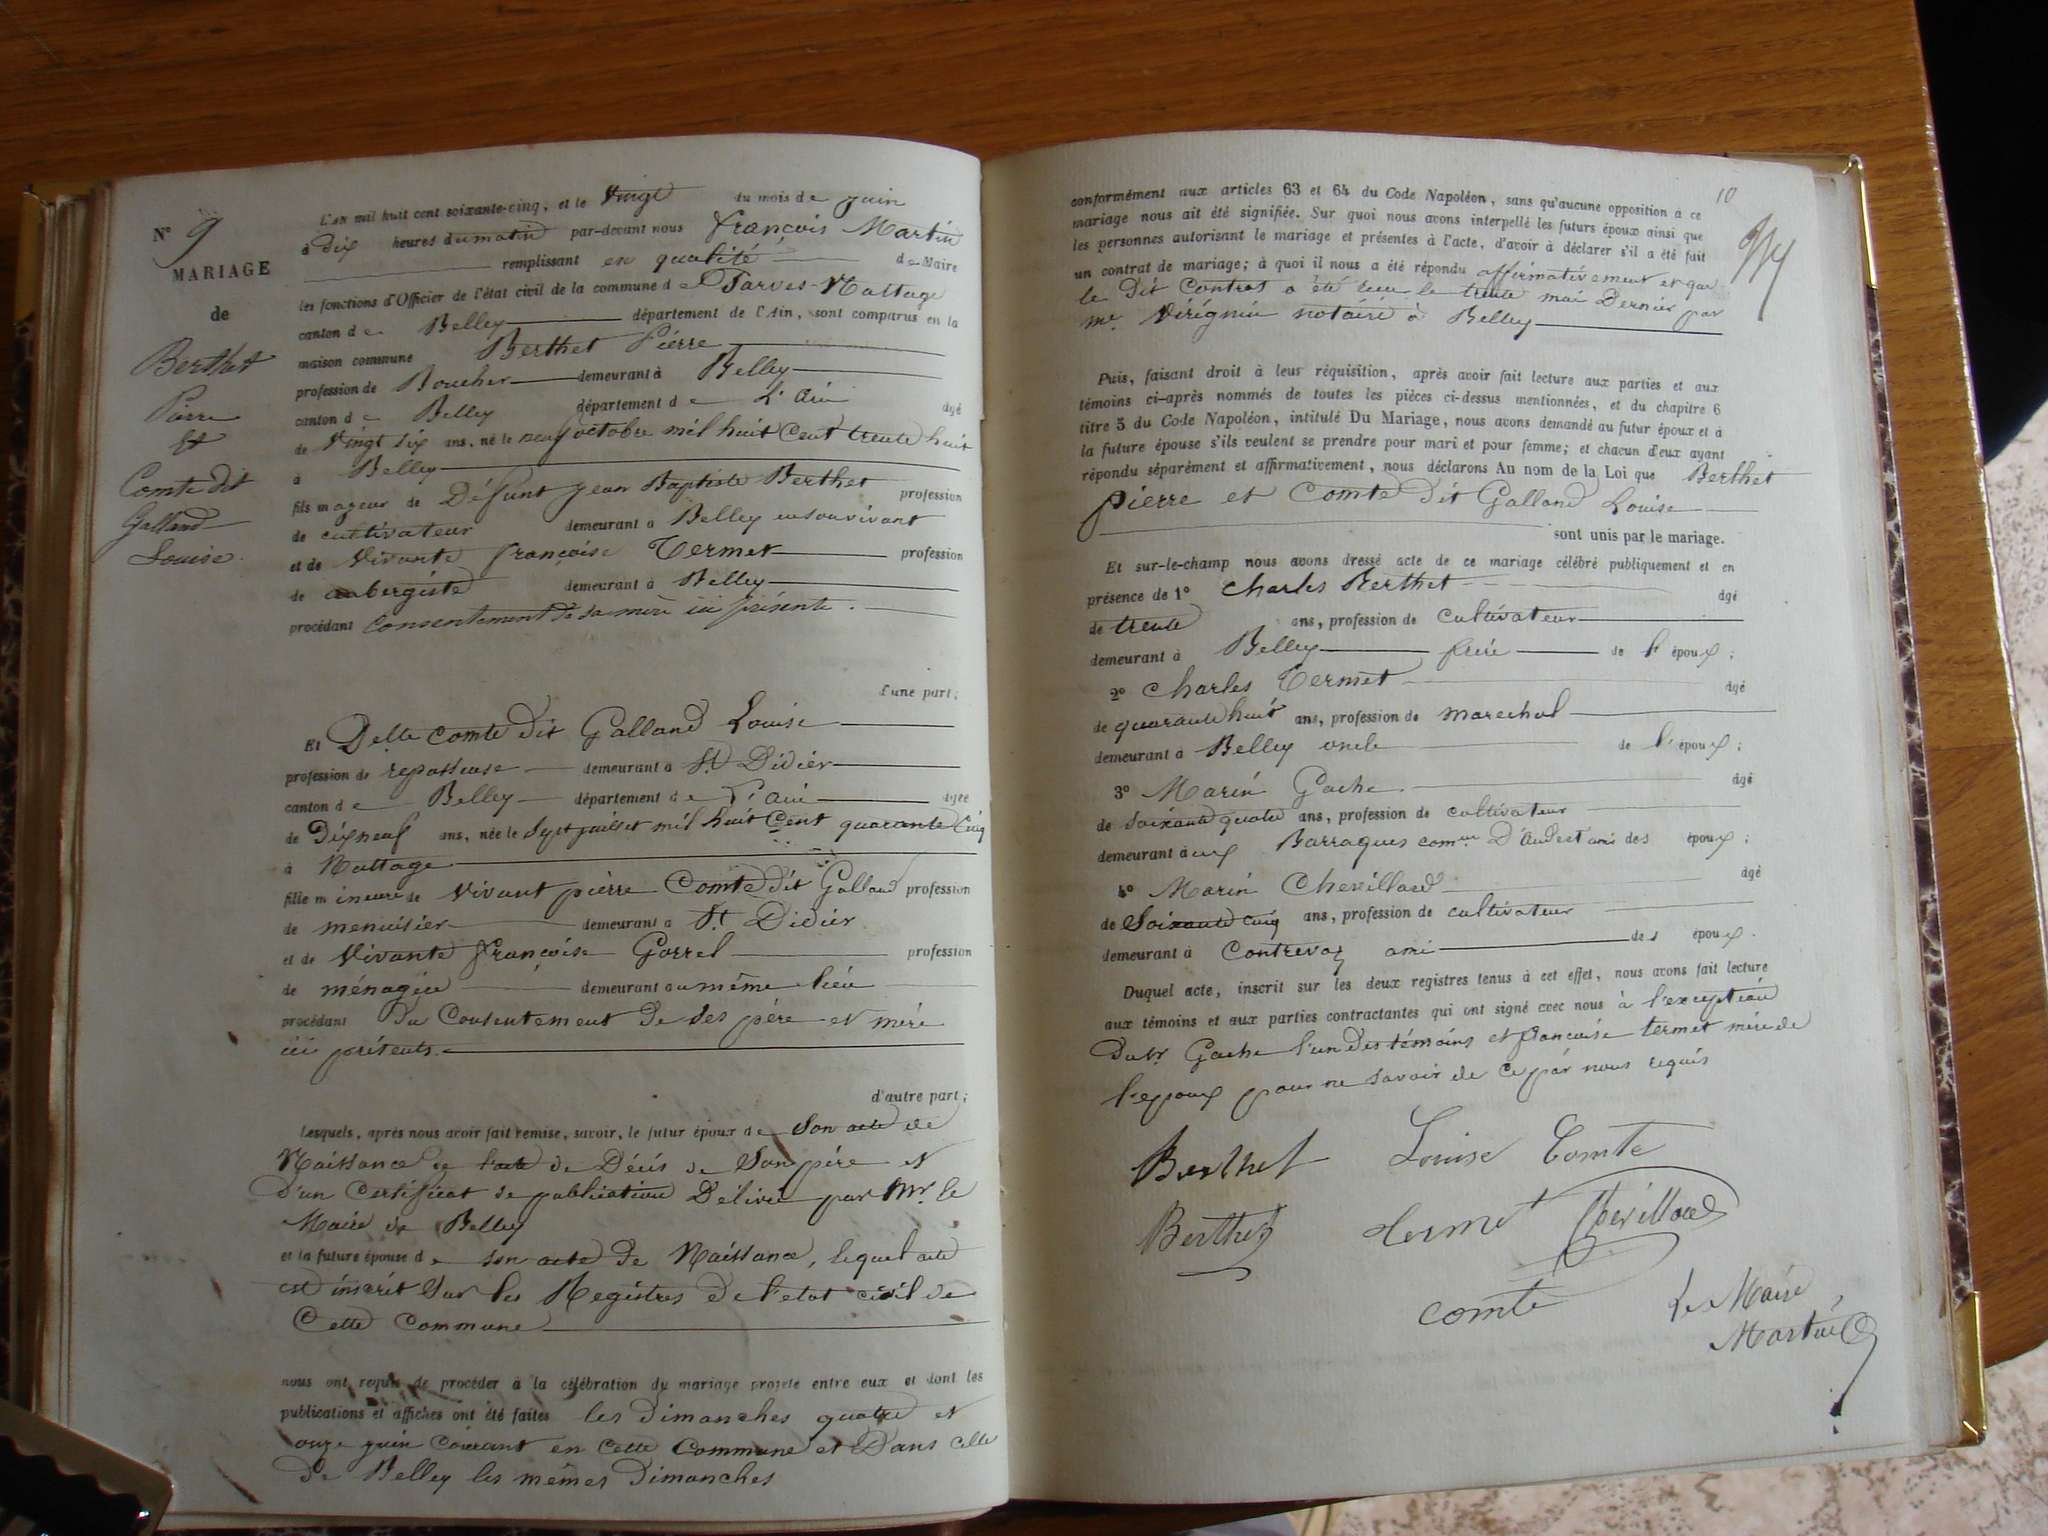 N° 9
MARIAGE
de
Berthet
Pierre
Et
Comte dit
Galland
Louise.
L'an mil huit cent soixante-cinq, et le Vingt du mois de juin
à Dix heures du matin par-devant nous françois Martin
remplissant en qualité de Maire
les fonctions d'Officier de l'état civil de la commune de Parves-Nattage
canton de Belley département de l'Ain, sont comparus en la
maison commune Berthet Pierre
profession de Boucher demeurant à Belley
canton de Belley département de L'ain âgé
de Vingt six ans, né le neuf octobre mil huit Cent trente huit
à Belley
fils mageur de Défunt jean Baptiste Berthet profession
de cultivateur demeurant à Belley en son vivant
et de Vivante françoise Termet profession
de aubergiste demeurant à Belley
procédant Consentement de sa mère ici présente.
d'une part;
Et Delle Comte dit Galland Louise
profession de repasseuse demeurant à St Didier
canton de Belley département de L'ain âgée
de Dix neuf ans, née le Sept juillet mil huit Cent quarante Cinq
à Nattage
fille mineure de Vivant pierre Comte dit Galland profession
de menuisier demeurant à St Didier
et de Vivante françoise Gorrel profession
de ménagère demeurant au même lieu
procédant Du Consentement de ses père et mère
ici présents.
d'autre part;
Lesquels, après nous avoir fait remise, savoir, le futur époux de Son acte de
Naissance de l'acte de Décès de Son père et
D'un Certificat de publication Délivré par Mr. le
Maire de Belley
et la future épouse de son acte de Naissance, lequel acte
est inscrit Sur les Registres de l'etat civil de
Cette Commune
nous ont requis de procéder à la célébration du mariage projeté entre eux et dont les
publications et affiches ont été faites les Dimanches quatre et
onze juin Courant en Cette Commune et Dans celle
De Belley les mêmes Dimanches
10
conformément aux articles 63 et 64 du Code Napoléon, sans qu'aucune opposition à ce
mariage nous ait été signifiée. Sur quoi nous avons interpellé les futurs époux ainsi que
les personnes autorisant le mariage et présentes à l'acte, d'avoir à déclarer s'il a été fait
un contrat de mariage; à quoi il nous a été répondu affirmativement et que
le Dit Contrat a été reçu le trente mai Dernier par
me. Vérégnin notaire à Belley
Puis, faisant droit à leur réquisition, après avoir fait lecture aux parties et aux
témoins ci-après nommés de toutes les pièces ci-dessus mentionnées, et du chapitre 6
titre 5 du Code Napoléon, intitulé Du Mariage, nous avons demandé au futur époux et à
la future épouse s'ils veulent se prendre pour mari et pour femme; et chacun d'eux ayant
répondu séparément et affirmativement, nous déclarons Au nom de la Loi que Berthet
pierre et Comte dit Galland Louise
sont unis par le mariage.
Et sur-le-champ nous avons dressé acte de ce mariage célébré publiquement et en
présence de 1° Charles Berthet âgé
de trente ans, profession de Cultivateur
demeurant à Belley frère de l'époux;
2° Charles Termet âgé
de quarante huit ans, profession de marechal
demeurant à Belley oncle de l'époux;
3° Marin Gache. âgé
de soixante quatre ans, profession de cultivateur
demeurant aux Barraques comne D'Andert ami des époux;
4° Marin Chevillard âgé
de Soixante cinq ans, profession de cultivateur
demeurant à Contrevoz ami des époux.
Duquel acte, inscrit sur les deux registres tenus à cet effet, nous avons fait lecture
aux témoins et aux parties contractantes qui ont signé avec nous à l'exception
Du Sr. Gache l'un Des témoins et françoise termet mère de
l'epoux pour ne savoir de ce par nous requis
Berthet Louise Comte
Berthet termet Chevillard
comte Le Maire
Martin